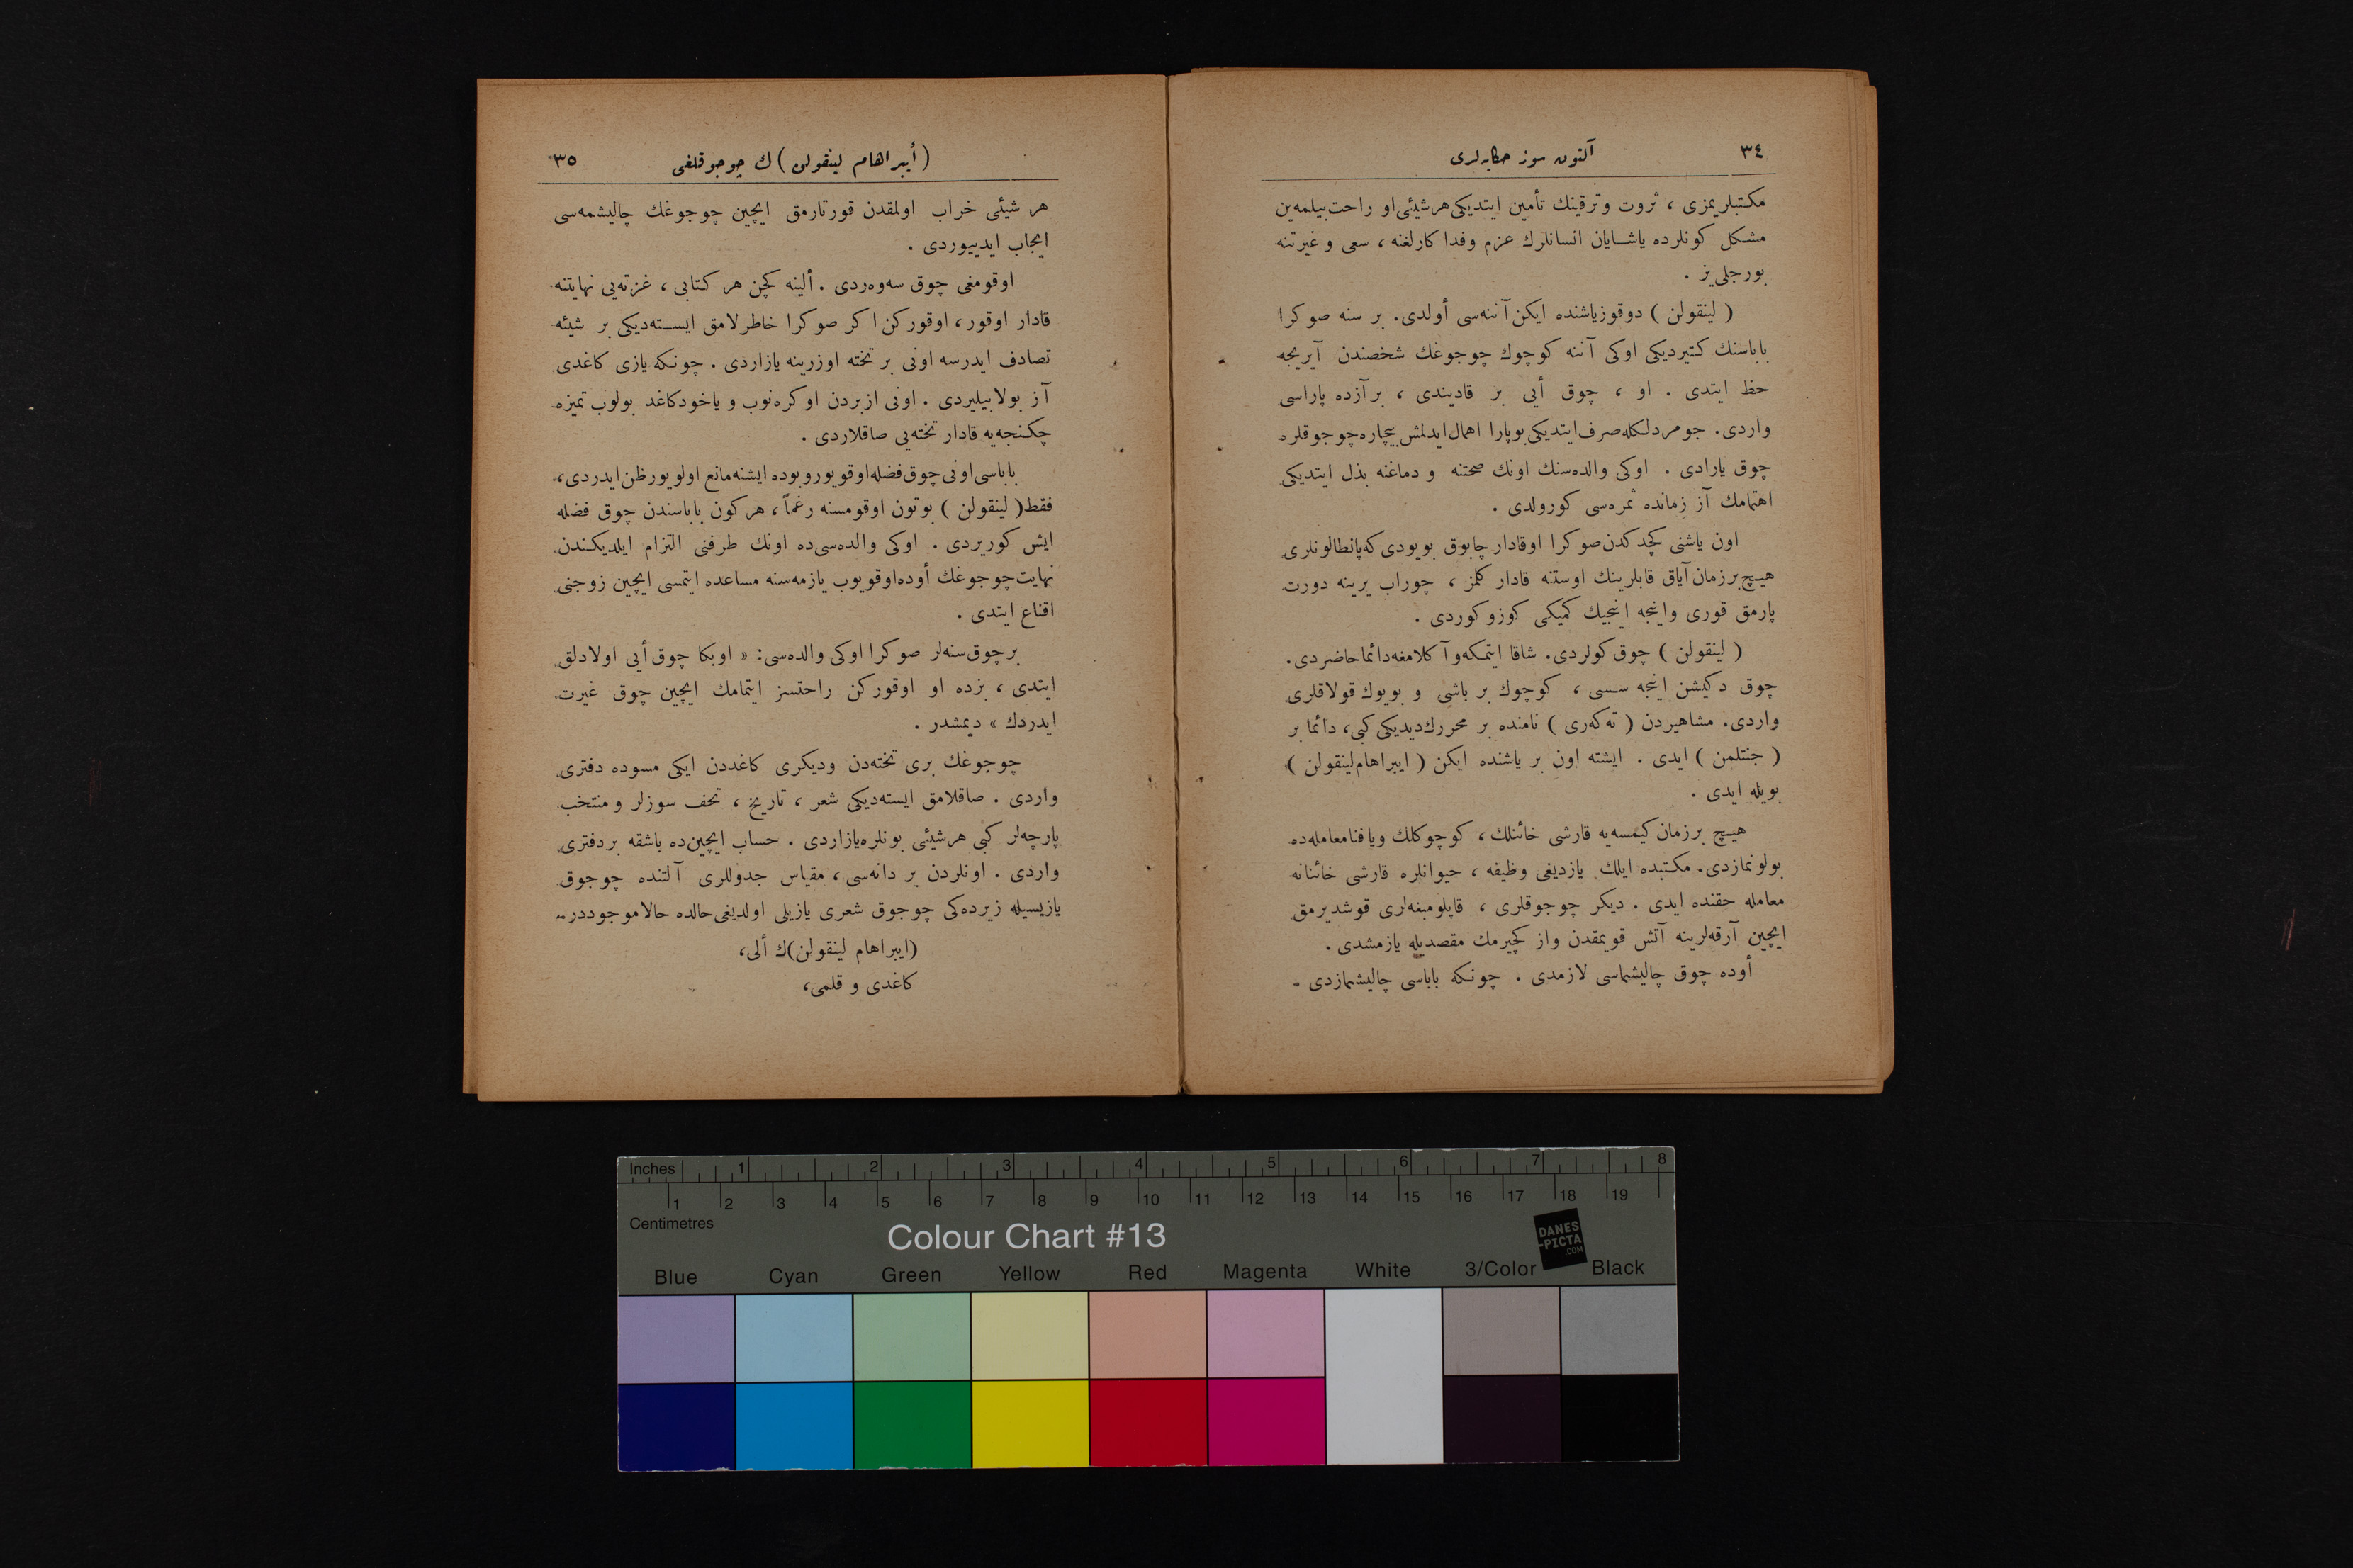 ٣٤
آلتون سوز حكايه‌لرى
مكتبلريمزى ، ثروت وترقينك تأمين ايتديكى هر شيئى او راحت بيلمه‌ين
مشكل كونلرده ياشايان انسانلرك عزم وفدا كارلغنه ، سعى و غيرتنه
بورجلى‌يز .
( لينقولن ) دوقوز ياشنده ايكن آننه‌سى أولدى. بر سنه صوكرا
باباسنك كتيرديكى اوكى آننه كوچوك چوجوغك شخصندن آيريجه
حظ ايتدى . او ، چوق أيى بر قاديندى ، بر آزده پاراسى
واردى. جومردلكله صرف ايتديكى بو پارا اهمال ايدلمش بيچاره چوجوقلره
چوق يارادى . اوكى والده‌سنك اونك صحتنه و دماغنه بذل ايتديكى
اهتمامك آز زمانده ثمره‌سى كورولدى .
اون ياشنى كچدكدن صوكرا اوقادار چابوق بويودى كه پانطالونلرى
هيچ بر زمان آياق قابلرينك اوستنه قادار كلمز ، چوراب يرينه دورت
پارمق قورى واينجه اينجيك كميكى كوزوكوردى .
( لينقولن ) چوق كولردى. شاقا ايتمكه و آكلامغه دائما حاضردى.
چوق دكيشن اينجه سسى ، كوچوك بر باشى و بويوك قولاقلرى
واردى. مشاهيردن ( ته‌كه‌رى ) نامنده بر محررك ديديكى كبى، دائما بر
( جنتلمن ) ايدى . ايشته اون بر ياشنده ايكن ( ايبراهام لينقولن )
بويله ايدى .
هيچ بر زمان كيمسه‌يه قارشى خائنلك ، كوچوكلك ويا فنا معامله‌ده
بولونمازدى. مكتبده ايلك يازديغى وظيفه ، حيوانلره قارشى خائنانه
معامله حقنده ايدى . ديكر چوجوقلرى ، قاپلومبغه‌لرى قوشديرمق
ايچين آرقه‌لرينه آتش قويمقدن واز كچيرمك مقصديله يازمشدى .
أوده چوق چاليشماسى لازمدى . چونكه باباسى چاليشمازدى .
( أيبراهام لينقولن ) ك چوجوقلغى
٣٥
هر شيئى خراب اولمقدن قورتارمق ايچين چوجوغك چاليشمه‌سى
ايجاب ايدييوردى .
اوقومغى چوق سه‌وه‌ردى . ألينه كچن هر كتابى ، غزته‌يى نهايتنه
قادار اوقور ، اوقوركن اكر صوكرا خاطرلامق ايسته‌ديكى بر شيئه
تصادف ايدرسه اونى بر تخته اوزرينه يازاردى . چونكه يازى كاغدى
آز بولابيليردى . اونى ازبردن اوكره‌نوب و ياخود كاغد بولوب تميزه
چكنجه‌يه قادار تخته‌يى صاقلاردى .
باباسى اونى چوق فضله اوقويور و بوده ايشنه مانع اولويور ظن ايدردى ،
فقط ( لينقولن ) بوتون اوقومسنه رغماً ، هر كون باباسندن چوق فضله
ايش كوريردى . اوكى والده‌سى ده اونك طرفنى التزام ايلديكندن
نهايت چوجوغك أوده اوقويوب يازمه‌سنه مساعده ايتمسى ايچين زوجنى
اقناع ايتدى .
بر چوق سنه‌لر صوكرا اوكى والده‌سى: « او بكا چوق أيى اولادلق
ايتدى ، بزده او اوقوركن راحتسز ايتمامك ايچين چوق غيرت
ايدردك » ديمشدر .
چوجوغك برى تخته‌دن وديكرى كاغددن ايكى مسوده دفترى
واردى . صاقلامق ايسته‌ديكى شعر ، تاريخ ، تحف سوزلر و منتخب
پارچه‌لر كبى هر شيئى بونلره يازاردى . حساب ايچين ده باشقه بر دفترى
واردى . اونلردن بر دانه‌سى ، مقياس جدوللرى آلتنده چوجوق
يازيسيله زيرده‌كى چوجوق شعرى يازيلى اولديغى حالده حالا موجوددر.
(ايبراهام لينقولن)ك ألى،
كاغدى و قلمى،
Inches 1 2 3 4 5 6 7 8
1 2 3 4 5 6 7 8 9 10 11 12 13 14 15 16 17 18 19
Centimetres
Colour Chart #13
DANES
-PICTA
.COM
Blue Cyan Green Yellow Red Magenta White 3/Color Black